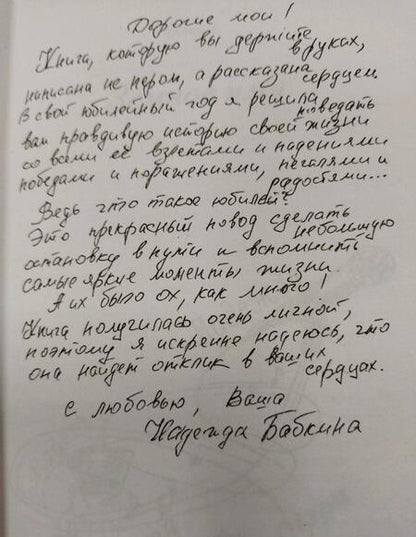 Дорогие мои!
Книга, которую вы держите в руках,
написана не пером, а рассказана сердцем.
В свой юбилейный год я решила поведать
вам правдивую историю своей жизни
со всеми её взлетами и падениями
победами и поражениями, печалями и
радостями...
Ведь что такое юбилей?
Это прекрасный повод сделать небольшую
остановку в пути и вспомнить
самые яркие моменты жизни.
А их было ох, как много!
Книга получилась очень личной,
поэтому я искренне надеюсь, что
она найдет отклик в ваших сердцах.
С любовью, Ваша
Надежда Бабкина